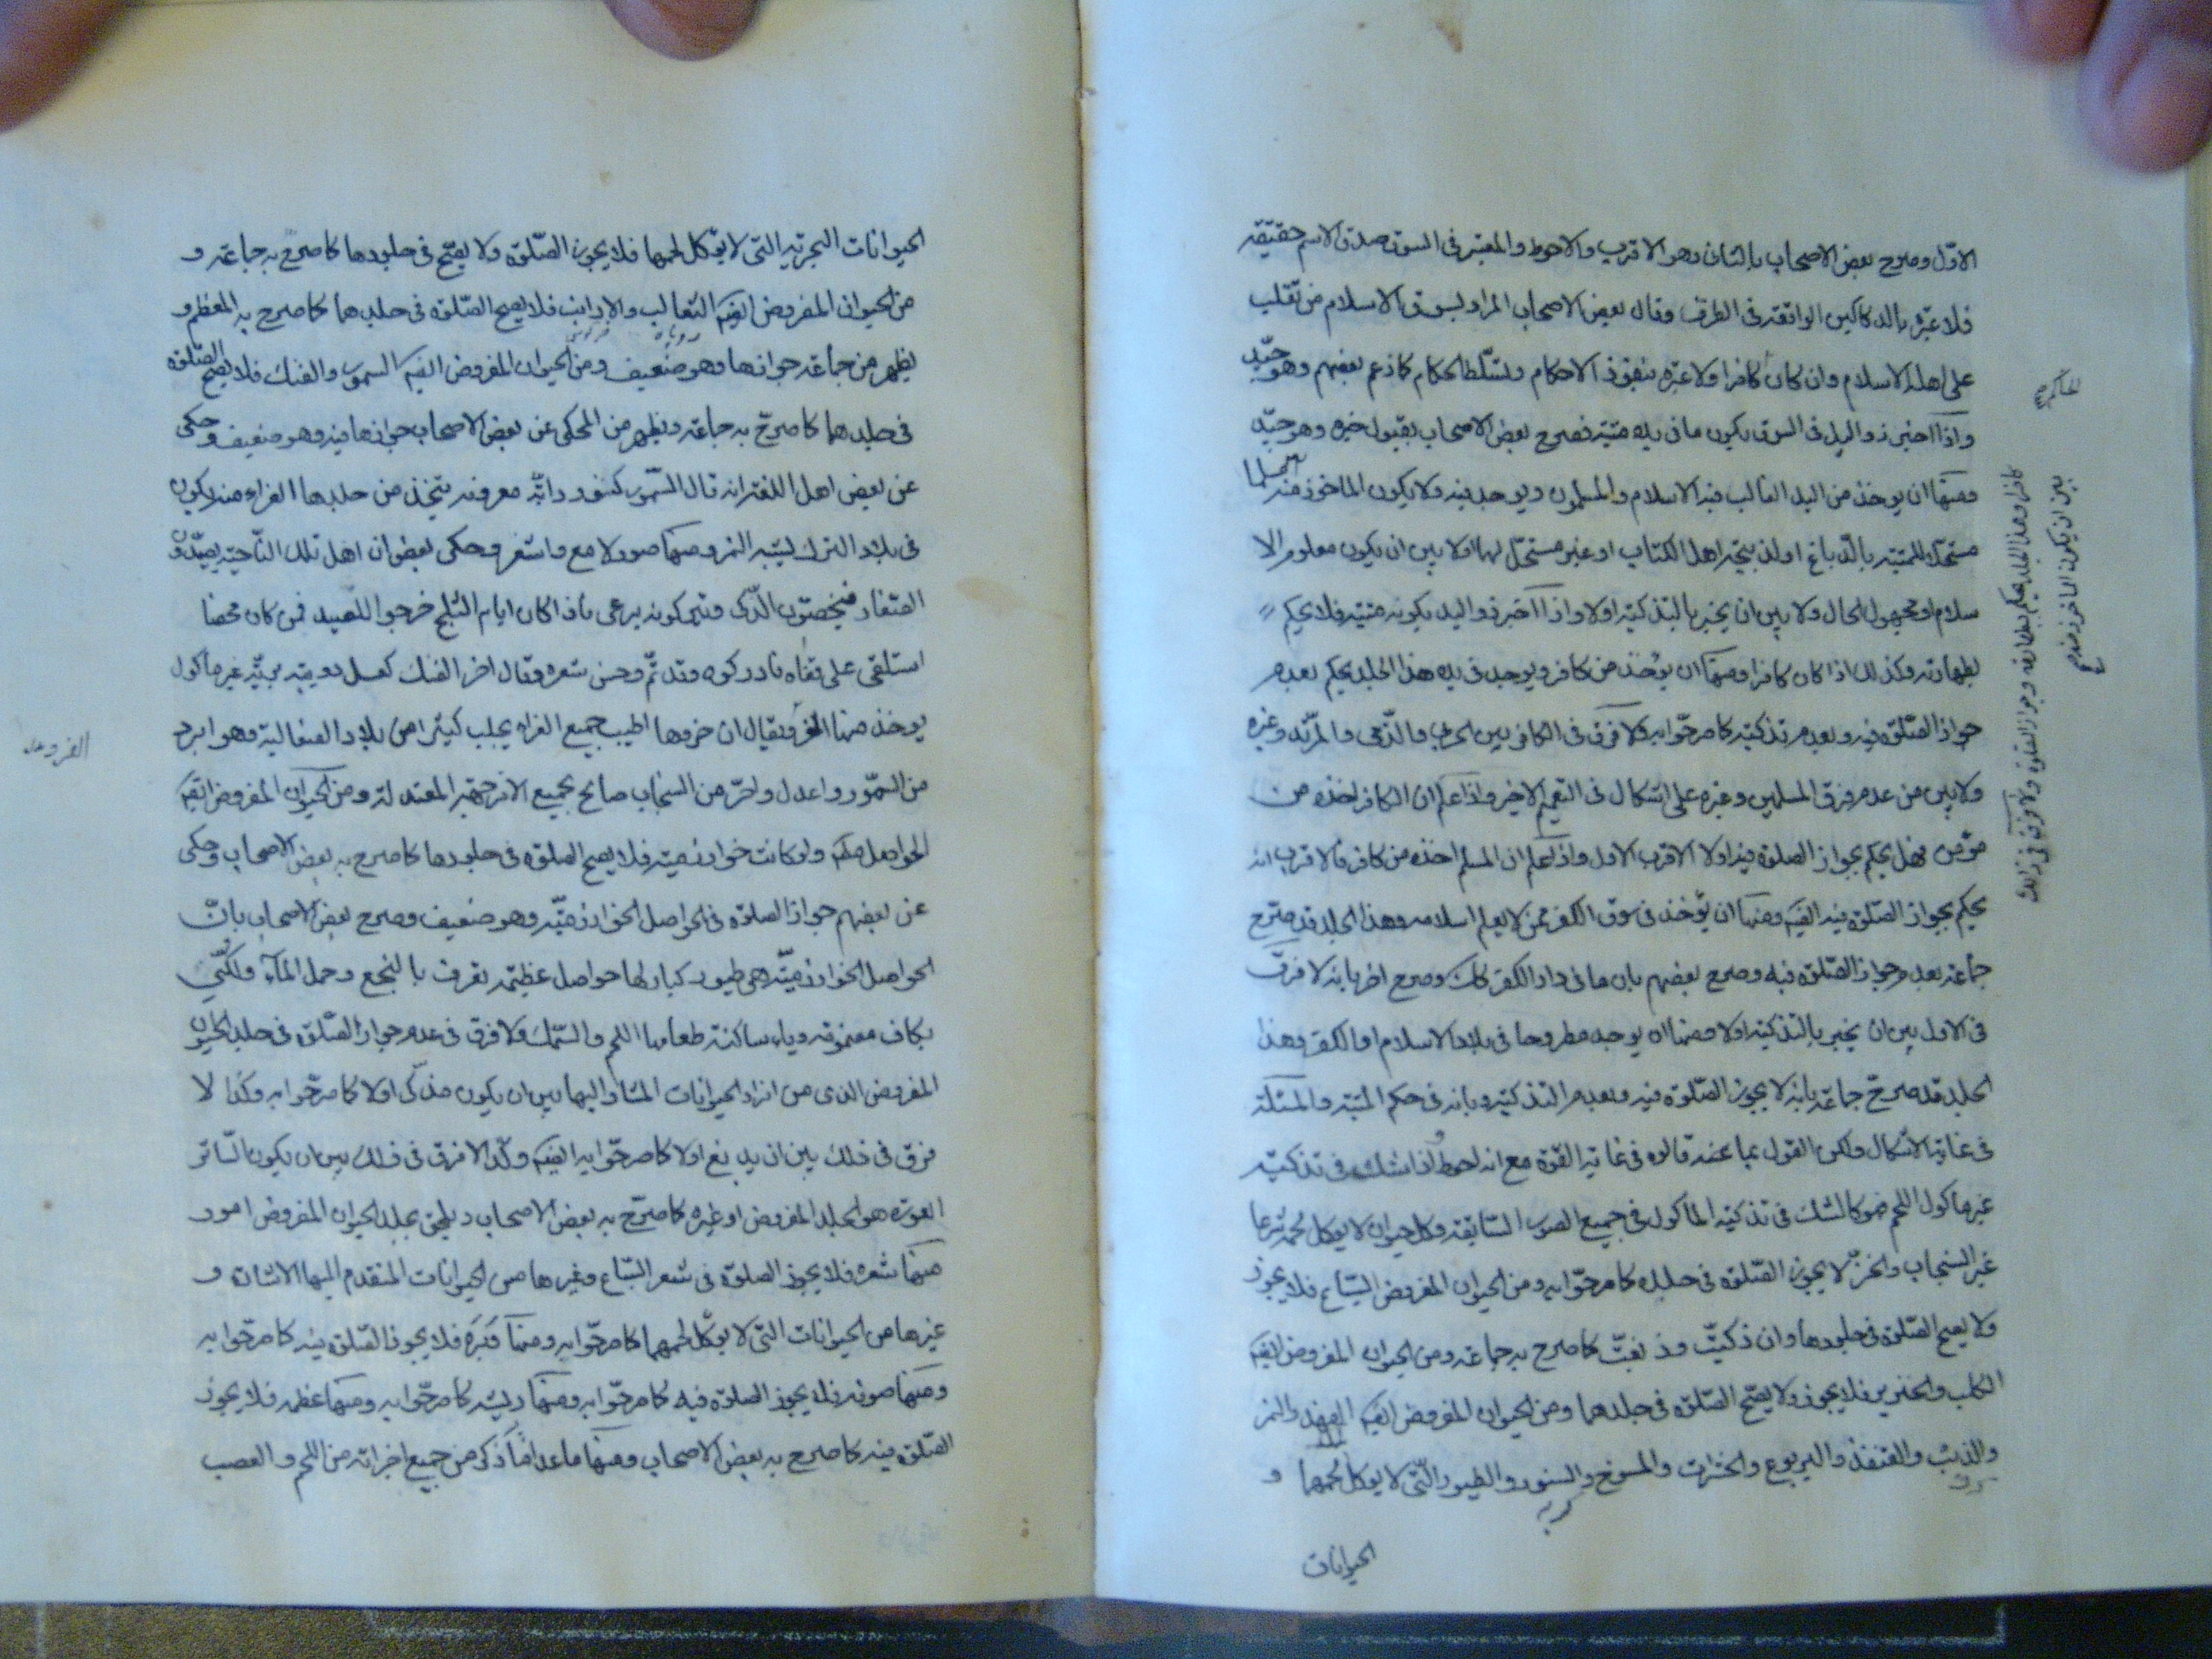 الاوّل وصرح بعض الاصحاب بالثانى وهو الاقرب والاحوط والمعتبر فى السوق صدق الاسم حقيقة
فلا عبرة بالدكاكين الواقعة فى الطرق وقال بعض الاصحاب المراد بسوق الاسلام من تغلب
على اهله الاسلام وان كان كافرا ولا عبرة بنفوذ الاحكام وتسلط الحكام كما زعم بعضهم وهو جيّد
واذا اخبر ذو اليد فى السوق بكون ما فى يده ميتة فصرح بعض الاصحاب بقبول خبره وهو جيّد
ومنها ان يوخذ من البلد الغالب فيه الاسلام والمسلمون ويوجد فيه ولا يكون الماخوذ منه مسلما
مستحلا للميتة بالدباغ او لذبيحة اهل الكتاب او غير مستحل لهما ولا بين ان يكون معلوم الا
سلام او مجهول الحال ولا بين ان يخبر بالتذكية اولا واذا اخبر ذو اليد بكونه ميتة فلا يحكم
بطهارته وكذلك اذا كان كافرا ومنها ان يؤخذ من كافر ويوجد فى يده هذا الجلد يحكم بعدم
جواز الصّلوة فيه وبعدم تذكيته كما صرحّوا به ولا فرق فى الكافر بين الحربى والذّمى والمرتد وغيره
ولا بين من عدم فرق المسلمين وغيره على اشكال فى التعميم الاخير واذا علم ان الكافر اخذه من
مؤمن فهل يحكم بجواز الصلوة فيه اولا الاقرب الاول واذا علم ان المسلم اخذه من كافر فالاقرب انه
يحكم بجواز الصّلوة فيه ايضا ومنها ان يؤخذ فى سوق الكفر ممن لا يعلم اسلامه وهذا الجلد قد صرّح
جماعة بعدم جواز الصّلوة فيه وصرح بعضهم بان ما فى دار الكفر كذلك وصرح اخر بانه لا فرق
فى الاول بين ان يخبر بالتذكية اولا ومنها ان يوجد مطروحا فى بلاد الاسلام او الكفر وهذا
الجلد قد صرّح جماعة بانه لا يجوز الصّلوة فيه وبعدم التذكية وبانه فى حكم الميتة والمسئلة
فى غاية الاشكال ولكن القول بما عنه قالوه فى غاية القوّة مع انه احوط واذا شك فى تذكية
غير ماكول اللحم فهو كالشك فى تذكية الماكول فى جميع الصور السّابقة وكل حيوان لا يوكل لحمه شرعا
غير السنجاب والخزّ لا يجوز الصّلوة فى جلده كما صرحّوا به ومن الحيوان المفروض السّباع فلا يجوز
ولا يصح الصّلوة فى جلودها وان ذكيّت ودبغت كما صرح به جماعة ومن الحيوان المفروض ايضا
الكلب والخنزير فلا يجوز ولا يصّح الصّلوة فى جلدهما ومن الحيوان المفروض ايضا الفهد والنمر
والذئب والقنفذ واليربوع والحشرات والمسوخ والسنور والطيور الّتى لا يوكل لحمها و
كرك
كربه
الحيوانات
بين ان يكون الماخوذ منه
كافر وهذا الجلد يحكم بطهارته وبجواز الصلوة ولا فرق فى ذلك
الحيوانات البحرّيه التى لا يؤكل لحمها فلا يجوز الصّلوة ولا يصّح فى جلودها كما صرح به جماعة و
من الحيوان المفروض ايضا الثعالب والارانب فلا يصح الصّلوة فى جلدهما كما صرح به المعظم و
روباه
خرگوش
يظهر من جماعة جوازها وهو ضعيف ومن الحيوان المفروض ايضا السمور والفنك فلا يصح الصّلوة
فى جلدهما كما صرحّ به جماعة ويظهر من المحكى عن بعض الاصحاب جوازها فيه وهو ضعيف وحكى
عن بعض اهل اللغة انه قال السّمور كتنور دابّة معروفة يتخذ من جلدها الفراء منه يكون
فى بلاد الترك يشبه النمر ومنها اسود لامع واشقر وحكى بعض ان اهل تلك النّاحية يصيدون
الصغار فيخصّون الذّكر ويتركونه يرعى فاذا كان ايام الثلج خرجوا للصيد فمن كان مخصّا
استلقى على قفاه فادركوه وقد تمّ وحسن شعره وقال اخر الفنك كعسل دويبة بريّة غير ماكول
يوخذ منها الفرو ويقال ان فروها اطيب جميع الفراء يجلب كثيرا من بلاد الصقالبة وهو ابرد
الفرو
من السّمور واعدل واحرّ من السنجاب صالح لجميع الامزجة المعتدلة ومن الحيوان المفروض ايضا
الحواصل ولو كانت خوارزمية فلا يصح الصلوة فى جلودها كما صرح به بعض الاصحاب وحكى
عن بعضهم جواز الصلوة فى الحواصل الخوارزميّه وهو ضعيف وصرح بعض الاصحاب بانّ
الحواصل الخوارزميّه هى طيور كبار لها حواصل عظيمة تعرف بالبجع وحمل المآء والكّى
بكاف مضمومة وياء ساكنة طعامها اللحم والسّمك ولا فرق فى عدم جواز الصّلوة فى جلد الحيوان
المفروض الذى من افراد الحيوانات المشار اليها بين ان يكون مذكّى اولا كما صرحّوا به وكذا لا
فرق فى ذلك بين ان يدبغ اولا كما صرحّوا به ايضا وكذا لا فرق فى ذلك بين ان يكون السّاتر
العورة هو الجلد المفروض او غيره كما صرّح به بعض الاصحاب ويلحق بجلد الحيوان المفروض امور
منها شعره فلا يجوز الصلوة فى شعر السّباع وغيرها من الحيوانات المتقدم اليها الاشارة و
غيرها من الحيوانات التى لا يؤكل لحمها كما صرحّوا به ومنها وبره فلا يجوز الصّلوة فيه كما صرحّوا به
ومنها صوفه فلا يجوز الصلوة فيه كما صرحّوا به ومنها ريشه كما صرحّوا به ومنها عظمه فلا يجوز
الصّلوة فيه كما صرح به بعض الاصحاب ومنها ما عدا ما ذكر من جميع اجزائه من اللحم والعصب